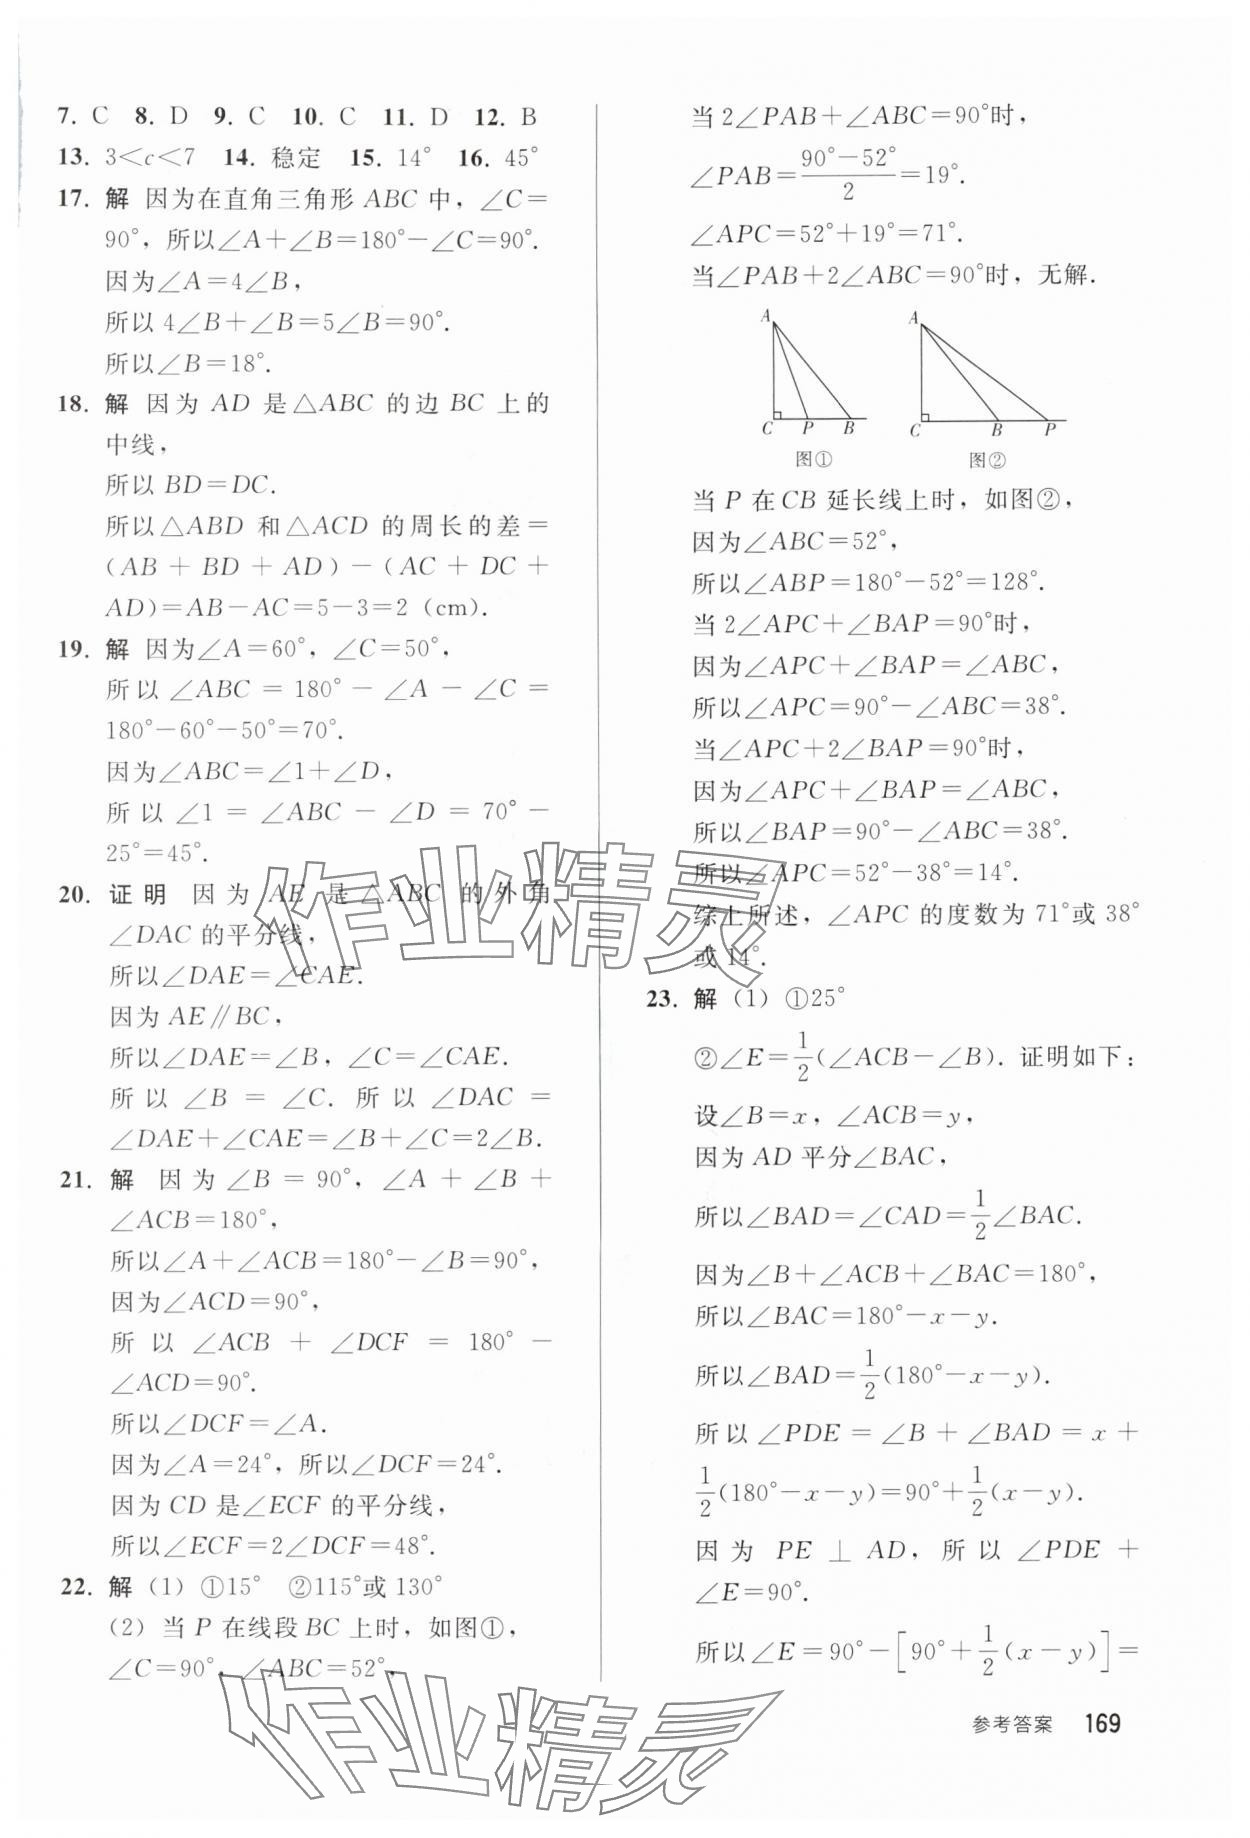 7. C  8. D  9. C  10. C  11. D  12. B
13. 3<c<7  14. 稳定  15. 14°  16. 45°
17. 解 因为在直角三角形 ABC 中，∠C=
90°，所以∠A+∠B=180°−∠C=90°.
因为∠A=4∠B，
所以 4∠B+∠B=5∠B=90°.
所以∠B=18°.
18. 解 因为 AD 是△ABC 的边 BC 上的
中线，
所以 BD=DC.
所以△ABD 和△ACD 的周长的差=
(AB+BD+AD)−(AC+DC+
AD)=AB−AC=5−3=2 (cm).
19. 解 因为∠A=60°，∠C=50°，
所以∠ABC=180°−∠A−∠C=
180°−60°−50°=70°.
因为∠ABC=∠1+∠D，
所以∠1=∠ABC−∠D=70°−
25°=45°.
20. 证明 因为 AE 是△ABC 的外角
∠DAC 的平分线，
所以∠DAE=∠CAE.
因为 AE∥BC，
所以∠DAE=∠B，∠C=∠CAE.
所以∠B=∠C. 所以∠DAC=
∠DAE+∠CAE=∠B+∠C=2∠B.
21. 解 因为∠B=90°，∠A+∠B+
∠ACB=180°，
所以∠A+∠ACB=180°−∠B=90°，
因为∠ACD=90°，
所以∠ACB+∠DCF=180°−
∠ACD=90°.
所以∠DCF=∠A.
因为∠A=24°，所以∠DCF=24°.
因为 CD 是∠ECF 的平分线，
所以∠ECF=2∠DCF=48°.
22. 解 (1) ①15° ②115°或 130°
(2) 当 P 在线段 BC 上时，如图①，
∠C=90°，∠ABC=52°，
当 2∠PAB+∠ABC=90°时，
∠PAB=\frac{90°−52°}{2}=19°.
∠APC=52°+19°=71°.
当∠PAB+2∠ABC=90°时，无解.
A
C P B
图①
A
C B P
图②
当 P 在 CB 延长线上时，如图②，
因为∠ABC=52°，
所以∠ABP=180°−52°=128°.
当 2∠APC+∠BAP=90°时，
因为∠APC+∠BAP=∠ABC，
所以∠APC=90°−∠ABC=38°.
当∠APC+2∠BAP=90°时，
因为∠APC+∠BAP=∠ABC，
所以∠BAP=90°−∠ABC=38°.
所以∠APC=52°−38°=14°.
综上所述，∠APC 的度数为 71°或 38°
或 14°.
23. 解 (1) ①25°
②∠E=\frac{1}{2}(∠ACB−∠B). 证明如下：
设∠B=x，∠ACB=y，
因为 AD 平分∠BAC，
所以∠BAD=∠CAD=\frac{1}{2}∠BAC.
因为∠B+∠ACB+∠BAC=180°，
所以∠BAC=180°−x−y.
所以∠BAD=\frac{1}{2}(180°−x−y).
所以∠PDE=∠B+∠BAD=x+
\frac{1}{2}(180°−x−y)=90°+\frac{1}{2}(x−y).
因为 PE⊥AD，所以∠PDE+
∠E=90°.
所以∠E=90°−[90°+\frac{1}{2}(x−y)]=
参考答案 169
作业精灵
作业精灵